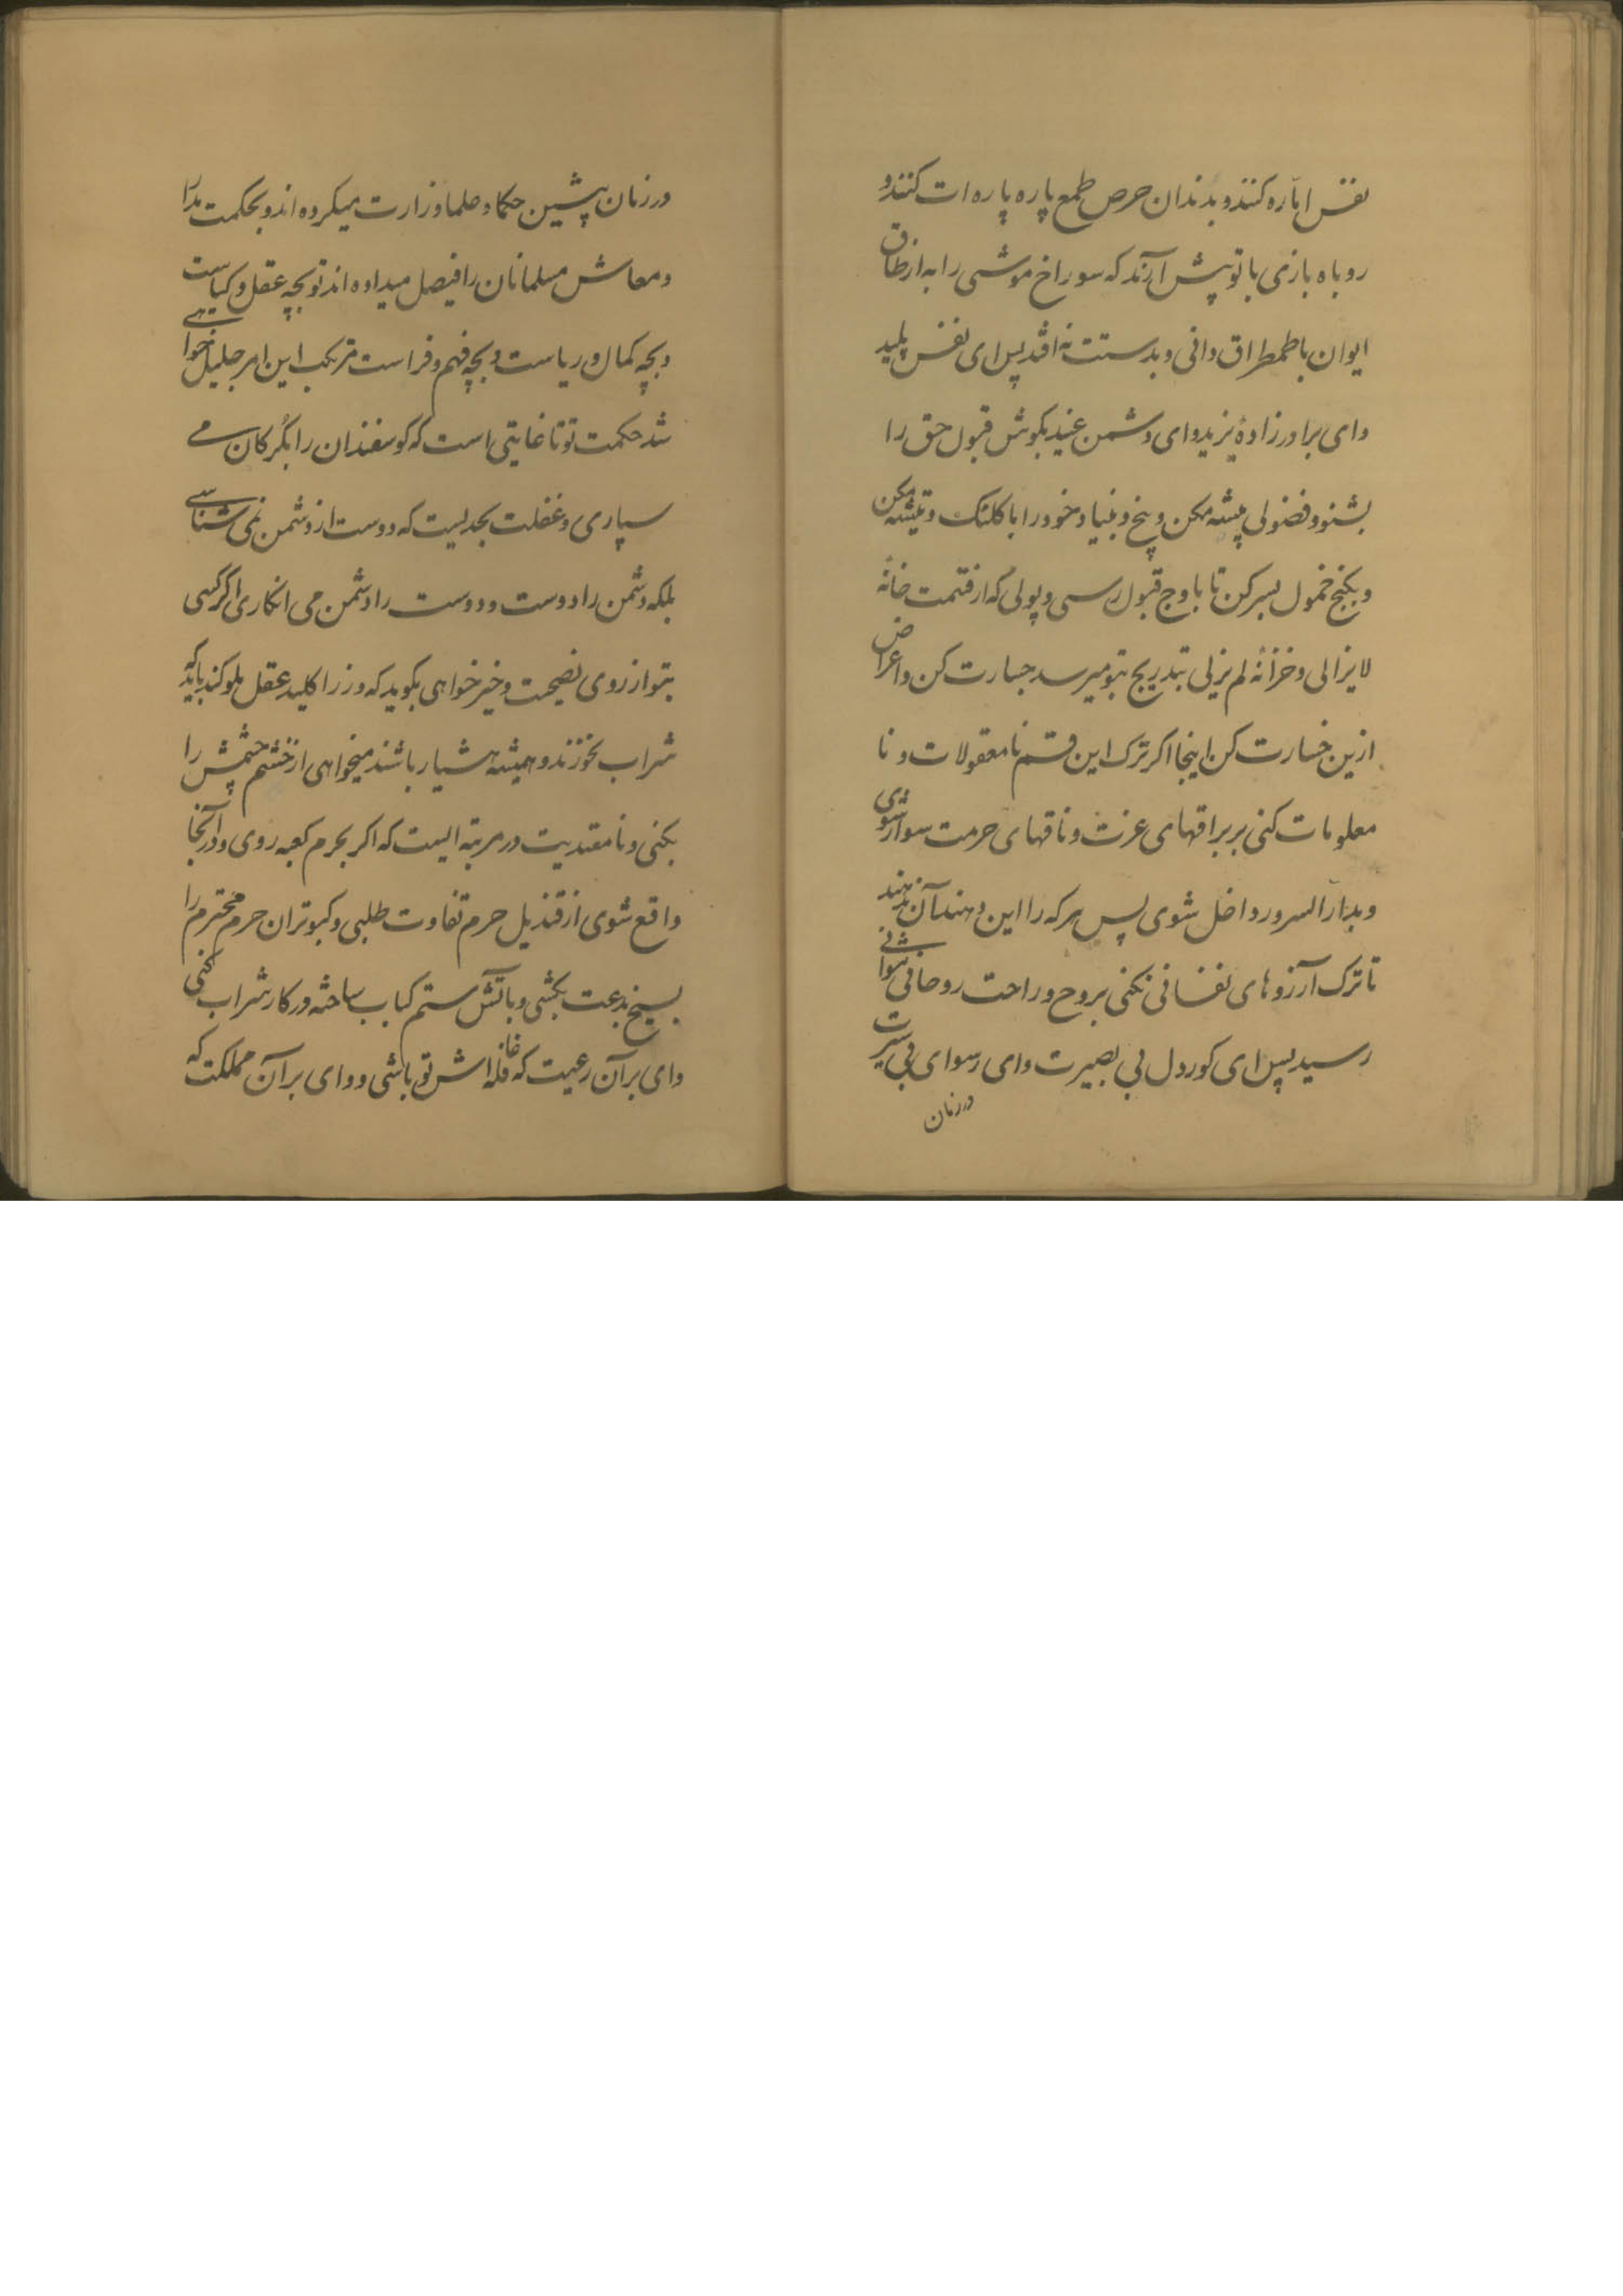 نفس اماره کنند و بدندان حرص طمع پاره پاره ات کنند و
روباه بازی با تو پیش آرند که سوراخ موشی را به از طاق
ایوان با طمطراق دانی و بدستت نه افتد پس ای نفس پلید
وای برادرزادهٔ یزید وای دشمن عنید بگوش قبول حق را
بشنو و فضولی پیشه مکن و بیخ و بنیاد خود را با کلنک و تیشه مکن
و بکنج خمول بسر کن تا باوج قبول رسی و پولی که از قسمت خانهٔ
لایزالی و خزانهٔ لم یزلی بتدریج بتو میرسد جسارت کن و اعراض
ازین خسارت کن اینجا اگر ترک این قسم نامعقولات و نا
معلومات کنی بر براقهای عزت و ناقهای حرمت سوار شوی
و بدار السرور داخل شوی پس هر که را این دهند آن ندهند
تا ترک آرزوهای نفسانی نکنی بروح و راحت روحانی نتوانی
رسید پس ای کور دل بی بصیرت وای رسوای بی سیرت
در زمان
در زمان پیشین حکما و صلحا وزارت میکرده اند و بحکمت مدار
و معاش مسلمانان را فیصل میداده اند تو بچه عقل و کیاست
و بچه کمال و ریاست و بچه فهم و فراست مرتکب این امر جلیل خواهی
شد حکمت تو تا غایتی است که گوسفندان را بگرکان می
سپاری و غفلت بحدیست که دوست از دشمن نمی شناسی
بلکه دشمن را دوست و دوست را دشمن می انگاری اگر کسی
بتو از روی نصیحت و خیرخواهی بگوید که وزرا کلید عقل ملوکند باید که
شراب نخورند و همیشه هشیار باشند میخواهی از خشم چشمش را
بکنی و نامقتدیت در مرتبهٔ ایست که اگر بحرم کعبه روی و در آنجا
واقع شوی از قندیل حرم تفاوت طلبی و کبوتران حرم محترم را
بسیخ بدعت بکشی و باتش ستم کباب ساخته در کار شراب کنی
وای بر آن رعیت که قافله اش تو باشی و وای بر آن مملکت که